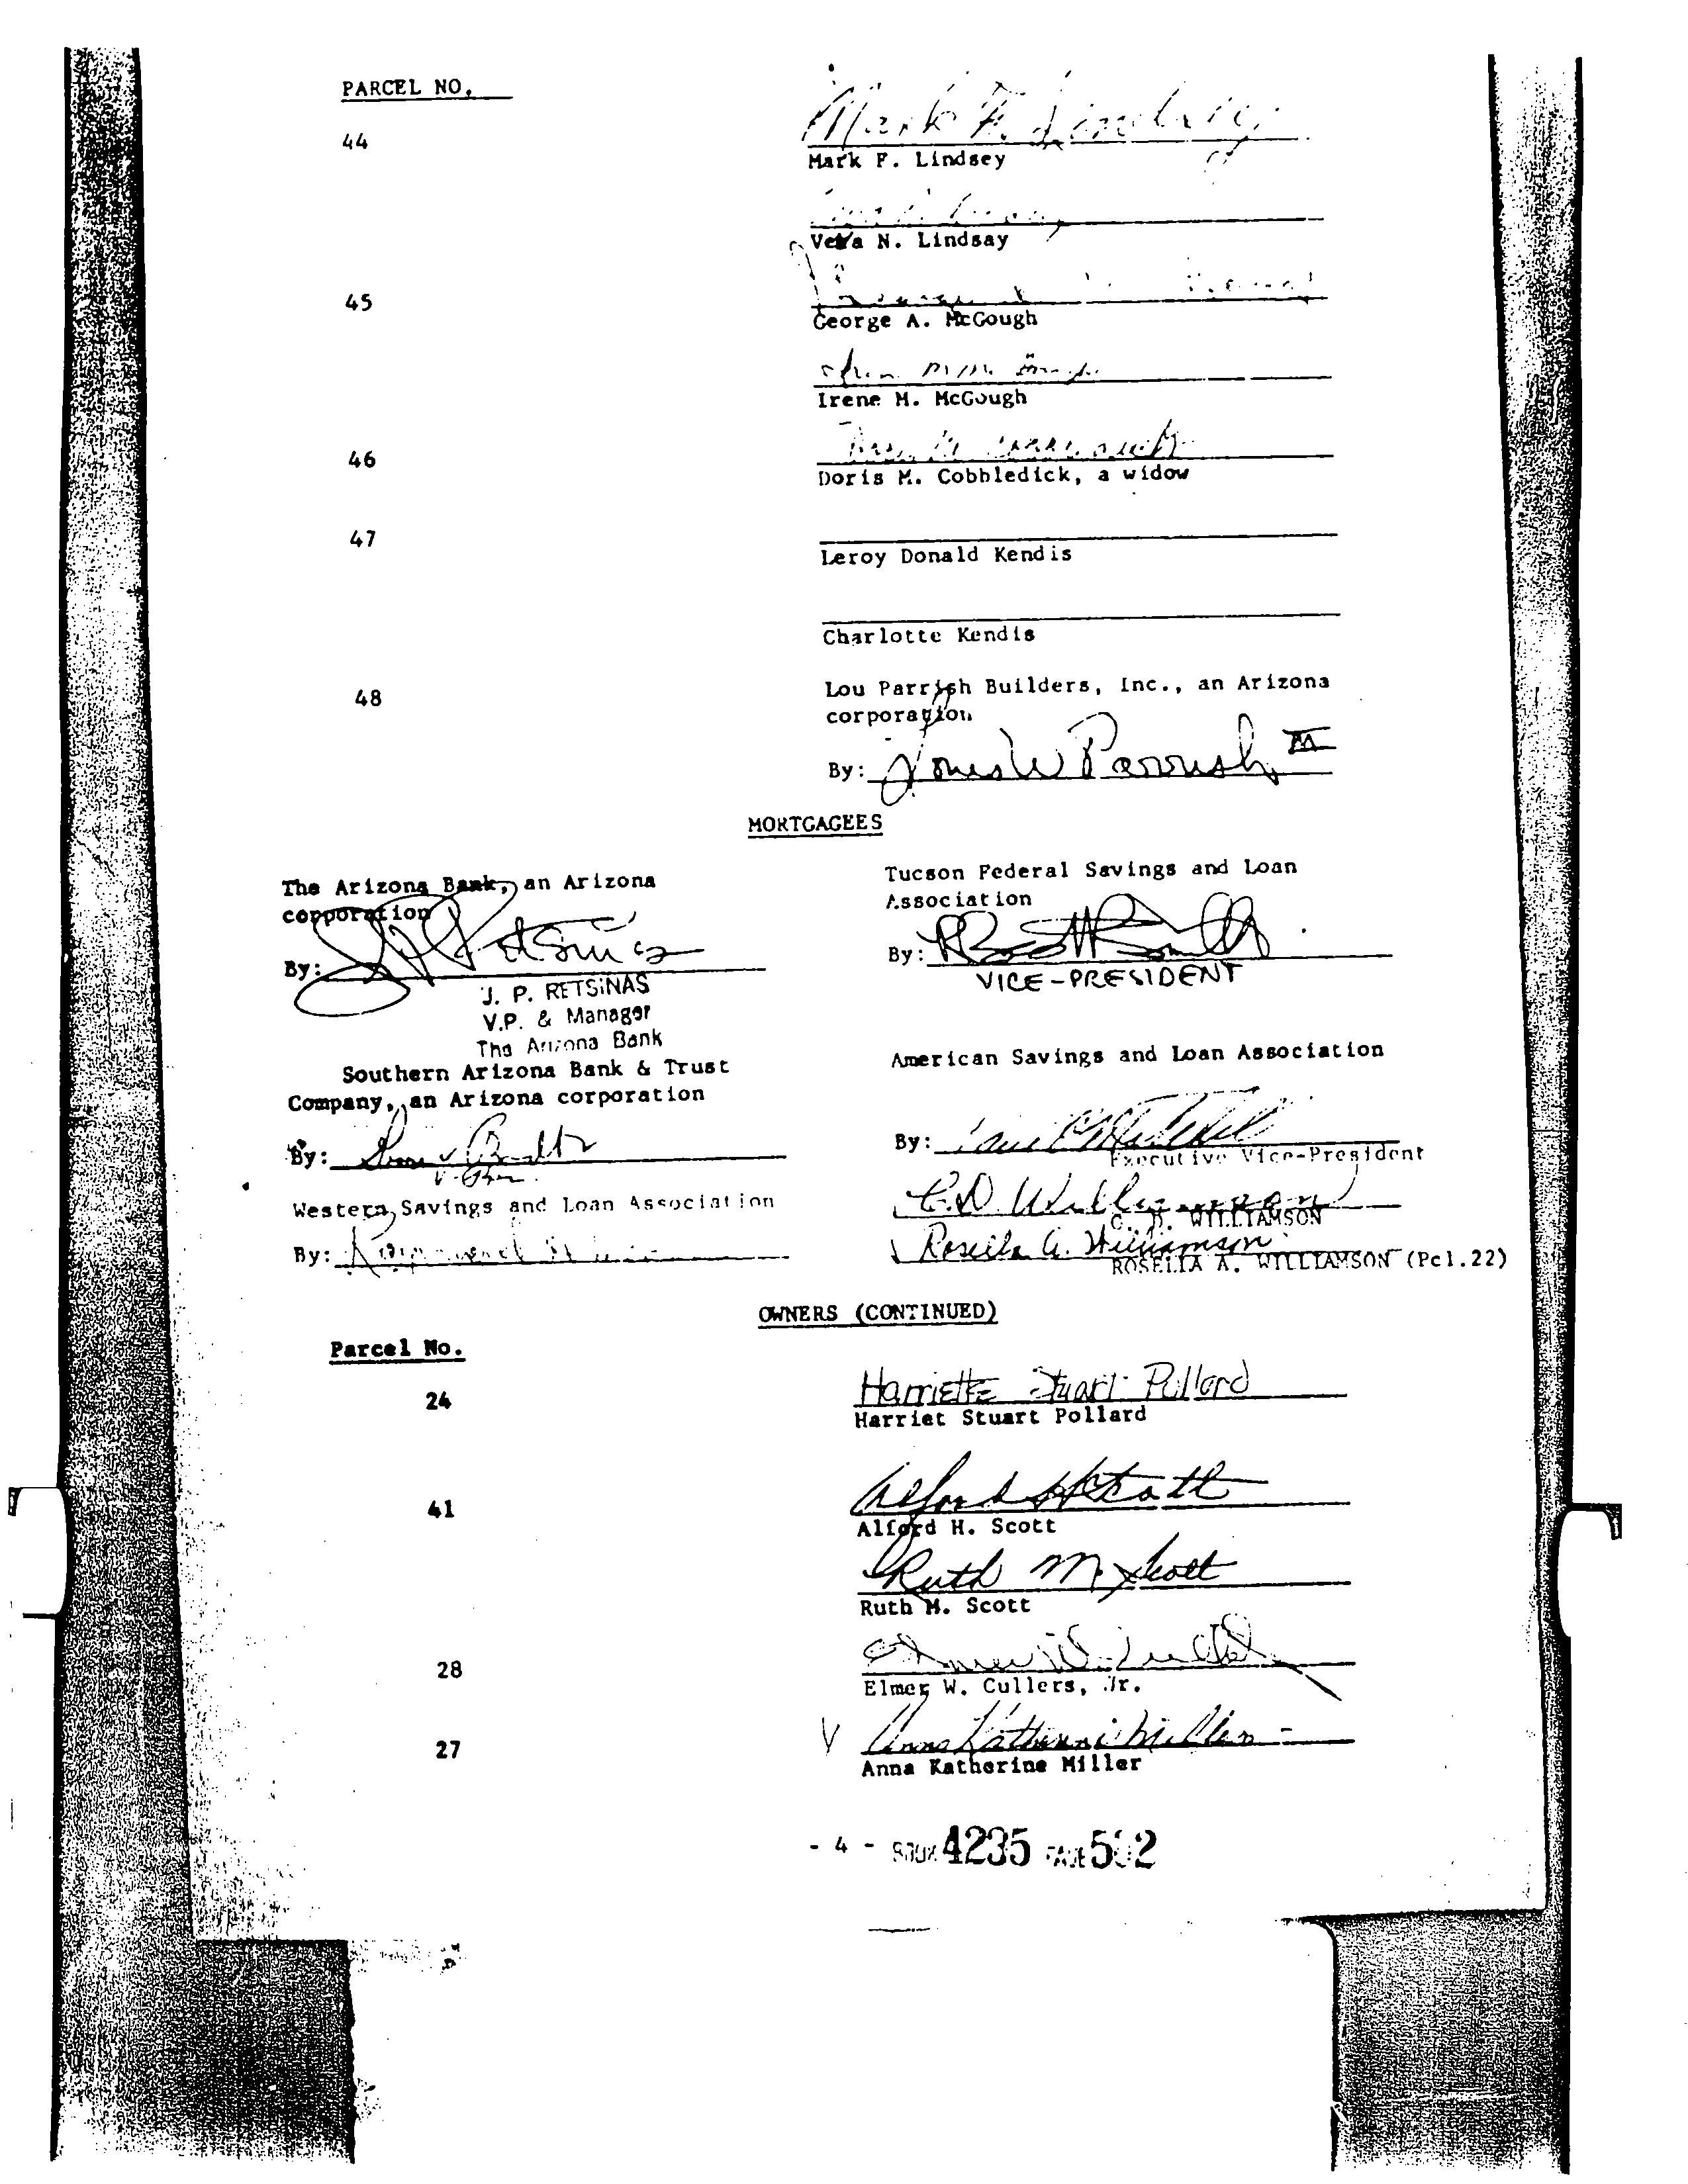 PARCEL NO.
44
Mark F. Lindsey
Mark F. Lindsey
Vera N. Lindsay
45
George A. McGough
Irene M. McGough
46
Doris M. Cobbledick, a widow
47
Leroy Donald Kendis
Charlotte Kendis
48
Lou Parrish Builders, Inc., an Arizona
corporation
By: W Parrish III
MORTGAGEES
The Arizona Bank, an Arizona
corporation
By: J P Retsinas
J. P. RETSINAS
V.P. & Manager
The Arizona Bank
Tucson Federal Savings and Loan
Association
By:
VICE-PRESIDENT
Southern Arizona Bank & Trust
Company, an Arizona corporation
By:
American Savings and Loan Association
By:
Executive Vice-President
C.D. Williamson
C. D. WILLIAMSON
Rosella A. Williamson
ROSELLA A. WILLIAMSON (Pcl.22)
Western Savings and Loan Association
By:
OWNERS (CONTINUED)
Parcel No.
24
Harriette Stuart Pollard
Harriet Stuart Pollard
41
Alford H Scott
Alford H. Scott
Ruth M. Scott
Ruth M. Scott
28
Elmer W. Cullers, Jr.
27
Anna Katherine Miller
Anna Katherine Miller
- 4 - BOOK 4235 PAGE